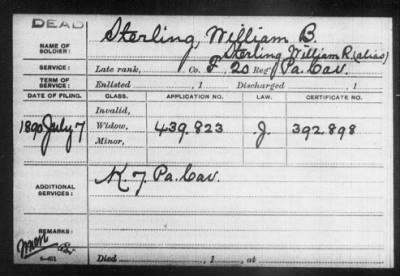 DEAD
Sterling, William B.
NAME OF SOLDIER:
Sterling William R. (alias)
SERVICE: Late rank, Co. F. 20 Reg't Pa. Cav.
TERM OF SERVICE: Enlisted , 1 Discharged , 1
DATE OF FILING. CLASS. APPLICATION NO. LAW. CERTIFICATE NO.
Invalid,
1890 July 7 Widow, 439.823 J. 392.898
Minor,
ADDITIONAL SERVICES: K 7 Pa. Cav.
REMARKS:
Died , 1 , at